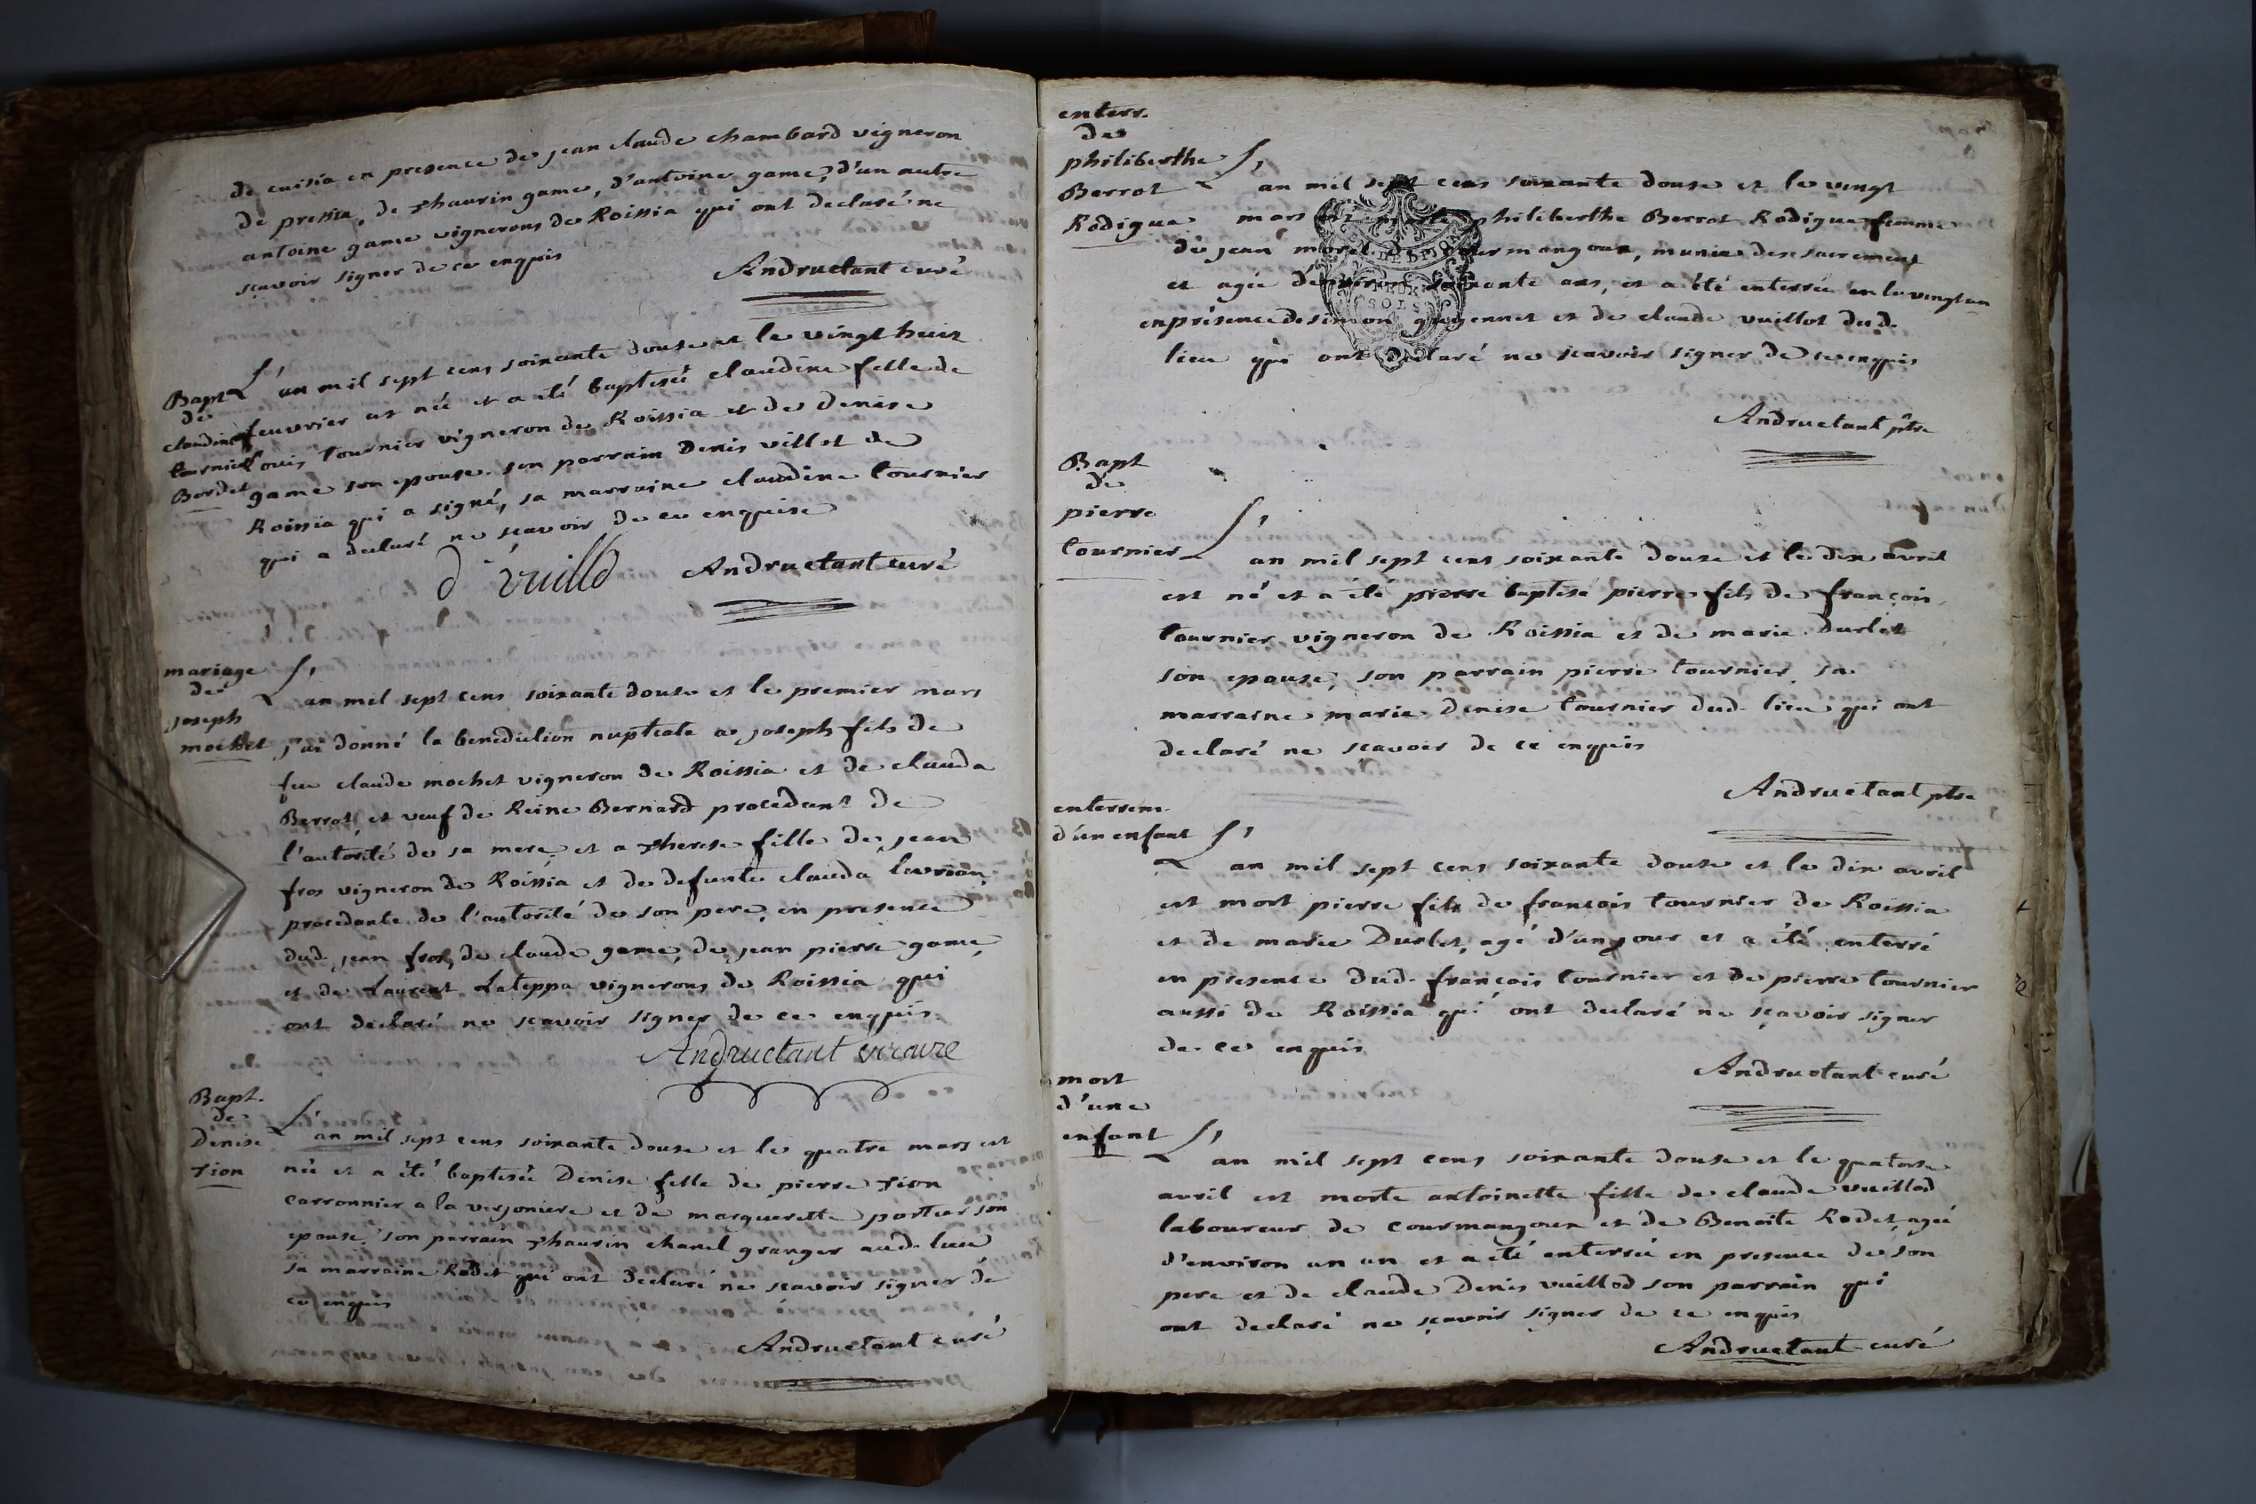 de cuisia en presence de jean claude chambard vigneron
de pressia, de thaurin game, d'antoine game, d'un autre
antoine game vignerons de Roissia qui ont declaré ne
sçavoir signer de ce enquis
Andructant curé
Bapt
de
claudine
tournier
Bordet
L'an mil sept cens soixante douse et le vingt huit
feuvrier est née et a été baptisée claudine fille de
louis tournier vigneron de Roissia et de Denise
game son epouse. son parrain Denis villot de
Roissia qui a signé, sa marraine claudine tournier
qui a declaré ne sçavoir de ce enquise
d vuillod
Andructant curé
mariage
de
joseph
mochet
L'an mil sept cens soixante douse et le premier mars
j'ai donné la benediction nuptiale a joseph fils de
feu claude mochet vigneron de Roissia et de clauda
Berrot, et veuf de Reine Bernard procedant de
l'autorité de sa mere, et a therese fille de jean
fros vigneron de Roissia et de defunte clauda
procedante de l'autorité de son pere, en presence
dud. jean fros, de claude game, de jean pierre game,
et de Laurent Lateppa vignerons de Roissia qui
ont declaré ne sçavoir signer de ce enquis
Andructant
Bapt.
de
Denise
Tion
L'an mil sept cens soixante douse et le quatre mars est
née et a été baptisée Denise fille de pierre Tion
carronnier a la verjoniere et de margueritte portier son
epouse, son parrain thaurin chanel granger aud. lieu
sa marraine Rodet qui ont declaré ne sçavoir signer de
ce enquis
Andructant curé
enterr.
de
philiberthe
Berrot
Rodigue
L'an mil sept cens soixante douse et le vingt
mars est morte philiberthe Berrot Rodigue femme
de jean morel de courmangoux, munie des sacremens
et agée d'environ soixante ans, et a été enterrée en le vingt un
en présence de simon et de claude vuillot dud.
lieu qui ont declaré ne sçavoir signer de ce enquis
Andructant ptre
Bapt
de
pierre
tournier
L'an mil sept cens soixante douse et le dix avril
est né et a été pierre baptisé pierre fils de françois
tournier vigneron de Roissia et de marie Durlet
son epouse, son parrain pierre tournier, sa
marraine marie Denise tournier dud. lieu qui ont
declaré ne sçavoir de ce enquis
Andructant ptre
enterrem.
d'un enfant
L'an mil sept cens soixante douse et le dix avril
est mort pierre fils de francois tournier de Roissia
et de marie Durlet, agé d'un jour et a été enterré
en presence dud. françois tournier et de pierre tournier
aussi de Roissia qui ont declaré ne sçavoir signer
de ce enquis
Andructant curé
mort
d'une
enfant
L'an mil sept cens soixante douse et le quatorse
avril est morte antoinette fille de claude vuillod
laboureur de courmangoux et de Benoite Rodet, agée
d'environ un an et a été enterrée en presence de son
pere et de claude Denis vuillod son parrain qui
ont declaré ne sçavoir signer de ce enquis
Andructant curé